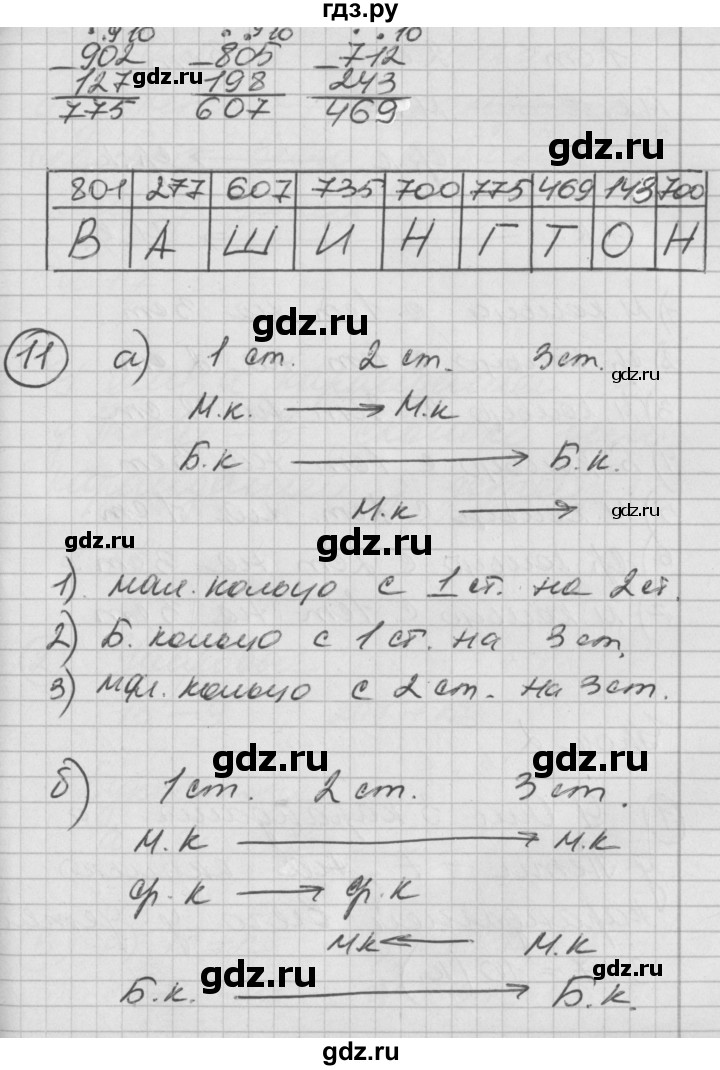 гдз.ру
902 805 712
127 198 243
775 607 469
gdz.ru gdz.ru
gdz.ru
801 277 607 735 700 775 469 143 700
В А Ш И Н Г Т О Н
gdz.ru
11 а) 1 ст. 2 ст. 3 ст.
gdz.ru
М.к. → М.к
Б.к → Б.к.
М.к → gdz.ru
gdz.ru gdz.ru
1) мал. кольцо с 1 ст. на 2 ст.
2) Б. кольцо с 1 ст. на 3 ст.
3) мал. кольцо с 2 ст. на 3 ст.
gdz.ru gdz.ru
б) 1 ст. 2 ст. 3 ст.
м.к → м.к
ср.к → ср.к
мк ← м.к
gdz.ru gdz.ru
Б.к. → Б.к.
gdz.ru